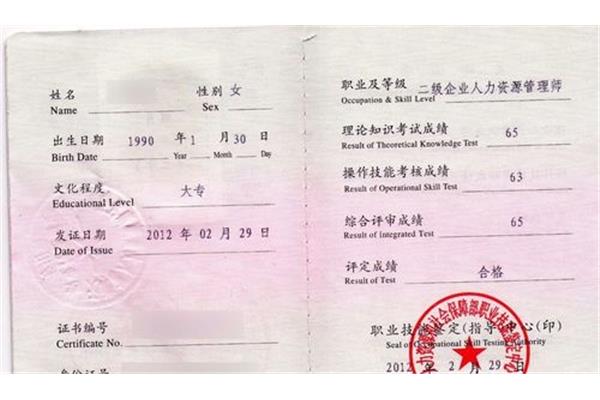 姓名 性别 女
Name Sex
出生日期 1990 年 1 月 30 日
Birth Date Year Month Day
文化程度 大专
Educational Level
发证日期 2012 年 02 月 29 日
Date of Issue
证书编号
Certificate No.
身份证号
职业及等级 二级企业人力资源管理师
Occupation & Skill Level
理论知识考试成绩 65
Result of Theoretical Knowledge Test
操作技能考核成绩 63
Result of Operational Skill Test
综合评审成绩 65
Result of Integrated Test
评定成绩 合格
Result of Test
职业技能鉴定(指导)中心(印)
Seal of Occupational Skill Testing Authority
2012 年 2 月 29 日
力资源和社会保障部职业技能鉴定中心